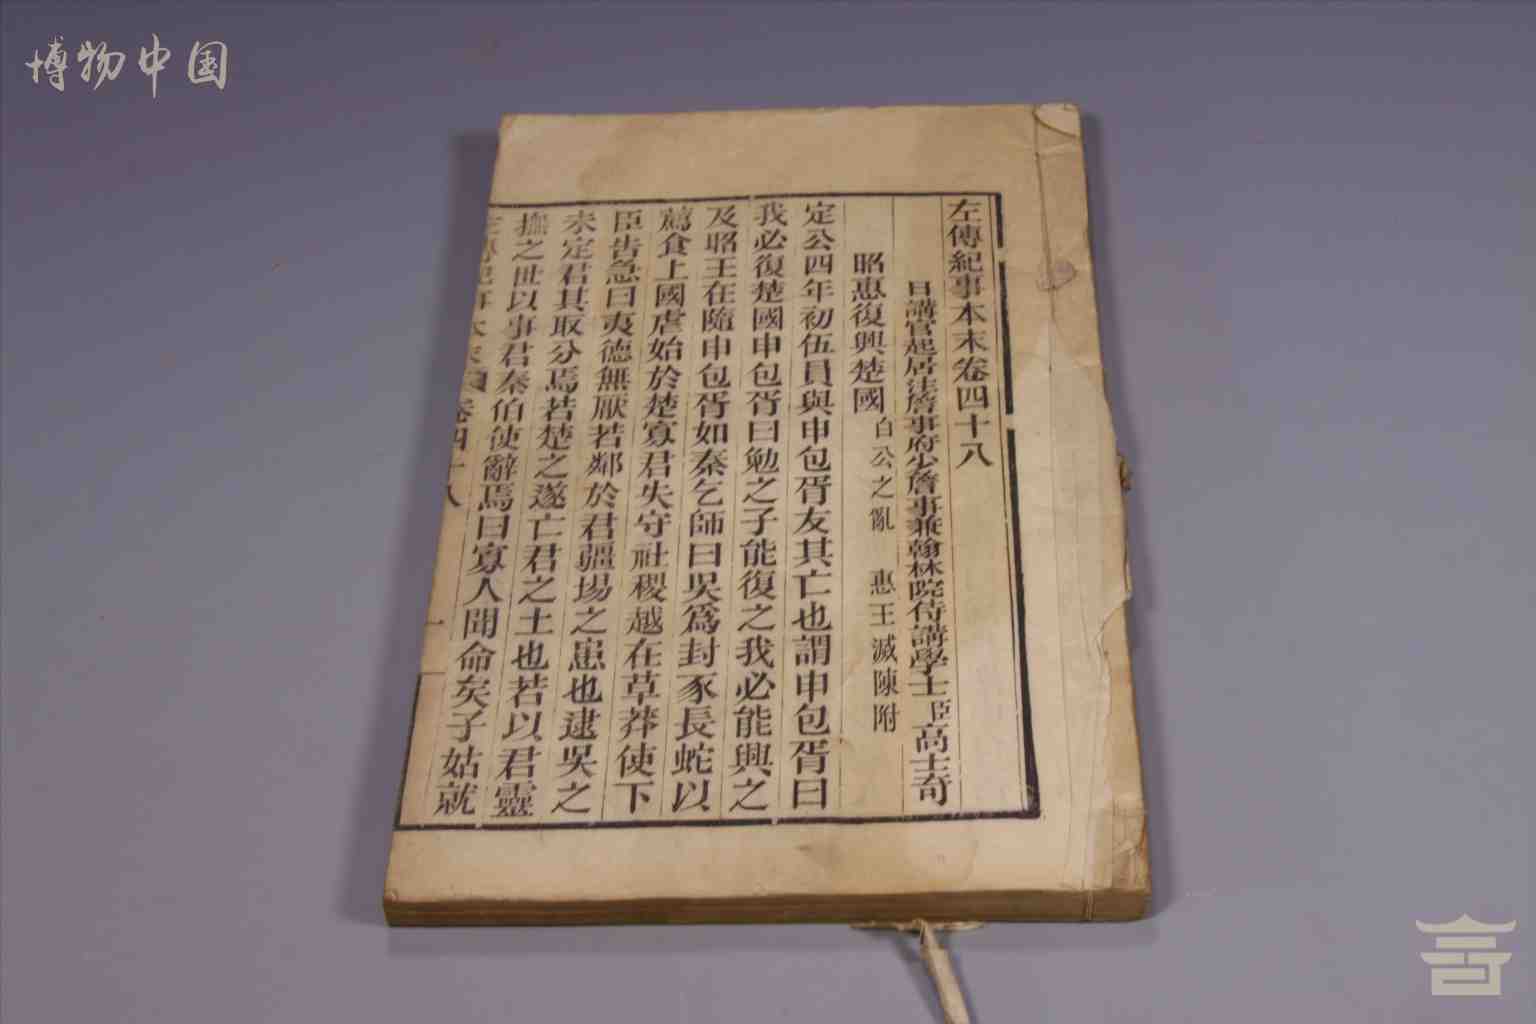 博物中国
左傳紀事本末卷四十八
日講官起居注詹事府少詹事兼翰林院侍講學士臣高士奇
昭惠復興楚國 白公之亂 惠王滅陳附
定公四年初伍員與申包胥友其亡也謂申包胥曰
我必復楚國申包胥曰勉之子能復之我必能興之
及昭王在隨申包胥如秦乞師曰吳爲封豕長蛇以
薦食上國虐始於楚寡君失守社稷越在草莽使下
臣告急曰夷德無厭若鄰於君疆埸之患也逮吳之
未定君其取分焉若楚之遂亡君之土也若以君靈
撫之世以事君秦伯使辭焉曰寡人聞命矣子姑就
左傳紀事本末 卷四十八 一